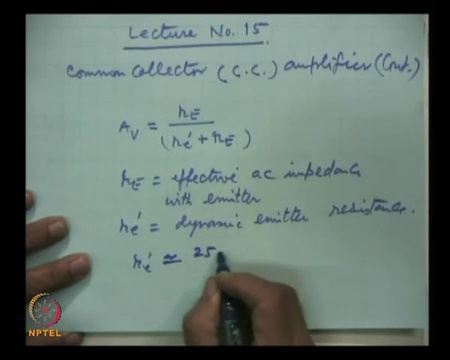 Lecture No. 15.
Common Collector (C.C.) amplifier (Cont.)
A_V = r_E / (r_e' + r_E)
r_E = effective ac impedance
with emitter
r_e' = dynamic emitter resistance.
r_e' ≃ 25
NPTEL